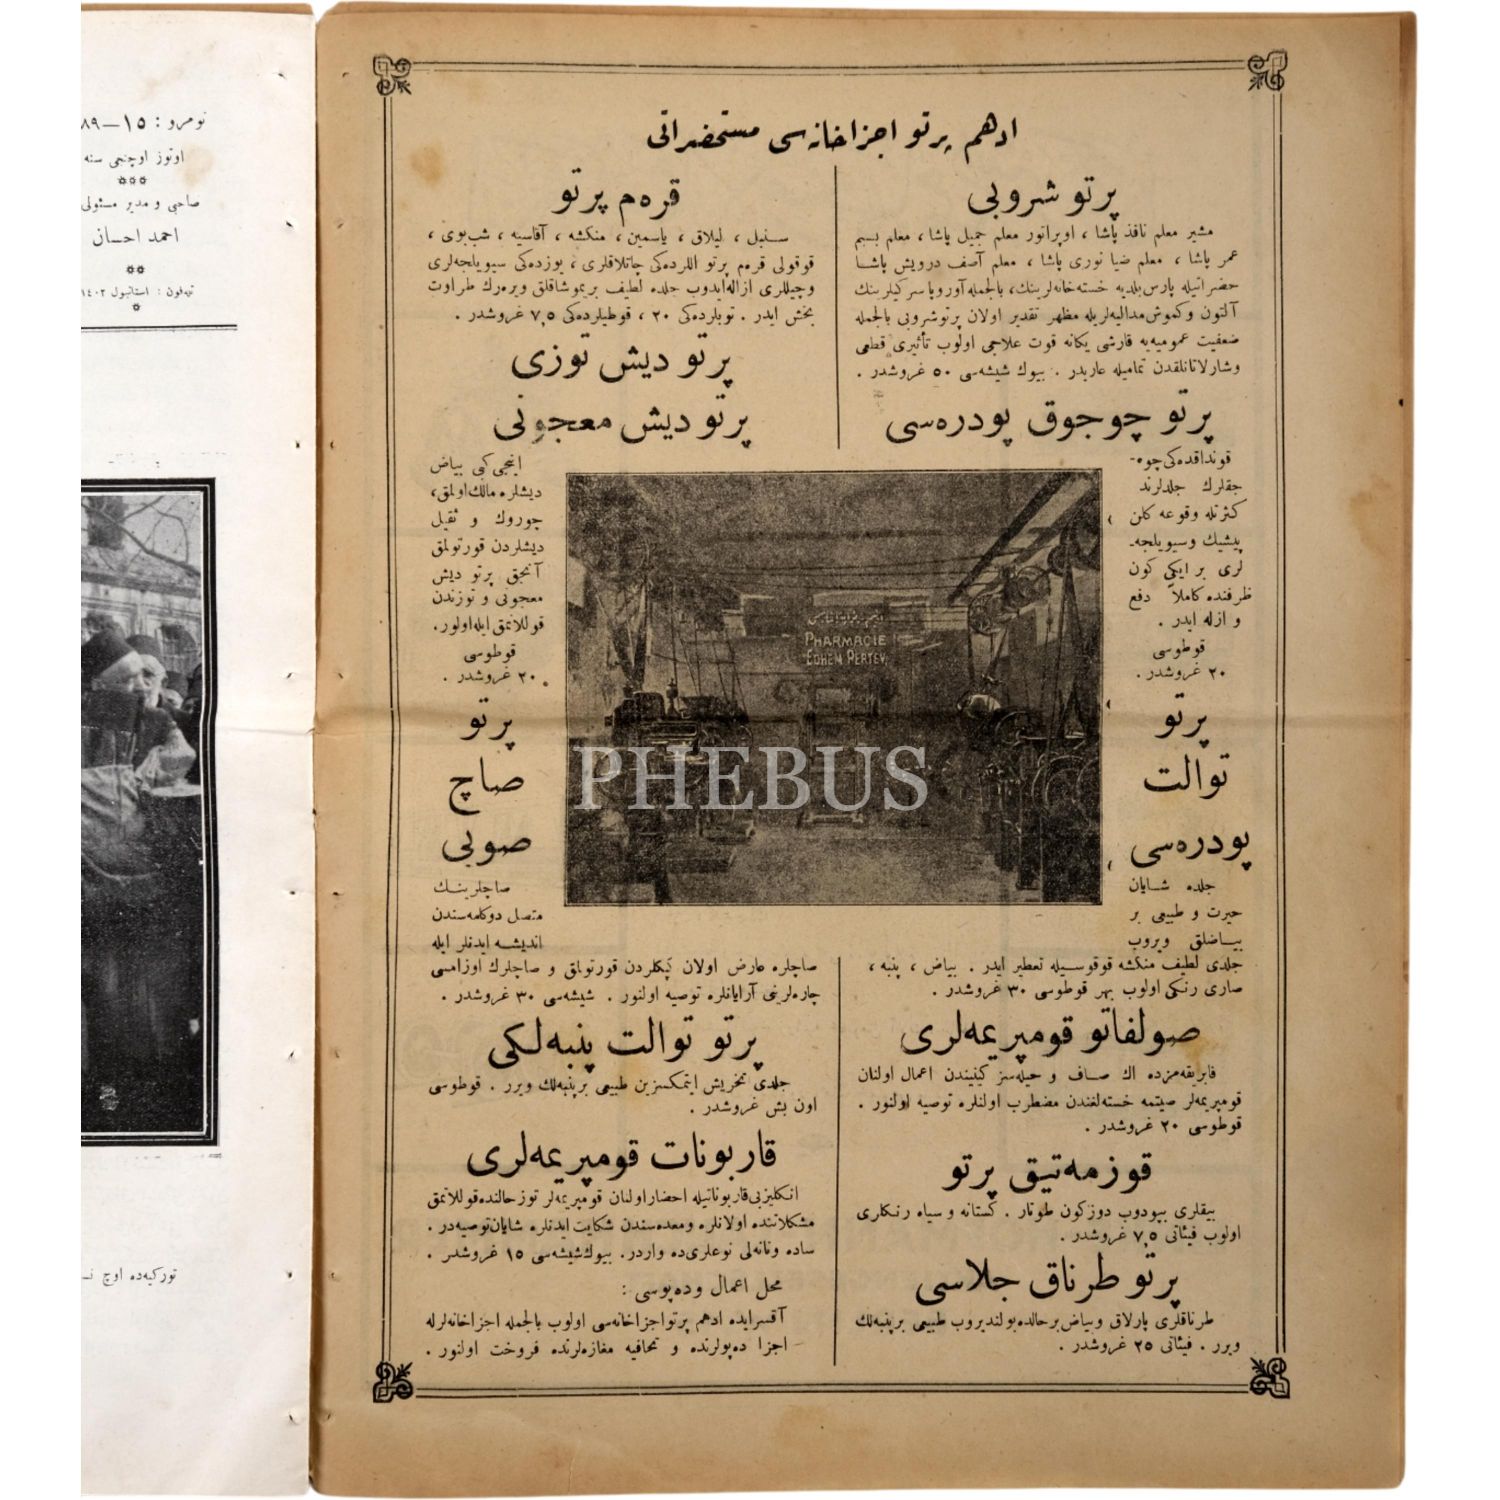 نومرو : ١٥—٨٩
اوتوز اوچنجی سنه
صاحبی و مدیر مسئولی
احمد احسان
تهلفون : استانبول ١٤٠٢
تورکیه‌ده اوچ
ادهم پرتو اجزاخانه‌سی مستحضراتی
پرتو شروبی
مشیر معلم نافذ پاشا ، اوپرانور معلم جمیل پاشا ، معلم بسیم
عمر پاشا ، معلم ضیا نوری پاشا ، معلم آصف درویش پاشا
حضراتیله پارس بلدیه خسته‌خانه‌لرینك، بالجمله آوروپا سرکیلرینك
آلتون و کموش مدالیه‌لریله مظهر تقدیر اولان پرتوشروبی بالجمله
ضعفیت عمومیه‌یه قارشی یکانه قوت علاجی اولوب تأثیری قطعی
وشارلاتانلقدن تمامیله عاریدر . بیوك شیشه‌سی ٥٠ غروشدر .
پرتو چوجوق پودره‌سی
قونداقده‌کی چوه‌-
جقلرك جلدلرند
کثرتله وقوعه کلن
پیشیك وسیویلجه-
لری بر ایکی کون
ظرفنده کاملاً دفع
و ازاله ایدر .
قوطوسی
٢٠ غروشدر .
پرتو
توالت
پودره‌سی
جلده شایان
حیرت و طبیعی بر
بیاضلق ویروب
جلدی لطیف منکشه قوقوسیله تعطیر ایدر . بیاض ، پنبه ،
صاری رنکی اولوب بهر قوطوسی ٣٠ غروشدر .
صولفاتو قومپریمه‌لری
فابریقه‌مزده اك صاف و حیله‌سز کینیندن اعمال اولنان
قومپریمه‌لر صیتمه خسته‌لغندن مضطرب اولنلره توصیه اولنور .
قوطوسی ٢٠ غروشدر .
قوزمه‌تیق پرتو
بیقلری بیودوب دوزکون طوتار . کستانه و سیاه رنکلری
اولوب فیئاتی ٧,٥ غروشدر .
پرتو طرناق جلاسی
طرناقلری پارلاق وبیاض برحالده بولندیروب طبیعی برپنبه‌لك
ویرر . فیئاتی ٢٥ غروشدر .
قره‌م پرتو
سنبل ، لیلاق ، یاسمین ، منکشه ، آقاسیه ، شب‌بوی ،
قوقولی قره‌م پرتو اللرده‌کی چاتلاقلری ، یوزده‌کی سیویلجه‌لری
وچیللری ازاله‌ایدوب جلده لطیف بریموشاقلق ویره‌رك طراوت
بخش ایدر . توبلرده‌کی ٢٠ ، قوطیلرده‌کی ٧,٥ غروشدر .
پرتو دیش توزی
پرتو دیش معجونی
اینجی کبی بیاض
دیشلره مالك اولمق،
چوروك و ثقیل
دیشلردن قورتولمق
آنجق پرتو دیش
معجونی و توزندن
قوللانمق ایله اولور.
قوطوسی
٢٠ غروشدر .
PHARMACIE
EDHEM PERTEV
پرتو
صاچ
صوبی
صاچلرینك
متصل دوکلمه‌سندن
اندیشه ایدنلر ایله
صاچلره عارض اولان کپکلردن قورتولمق و صاچلرك اوزامسی
چاره‌لرینی آرایانلره توصیه اولنور . شیشه‌سی ٣٠ غروشدر .
پرتو توالت پنبه‌لکی
جلدی تخریش ایتمکسزین طبیعی برپنبه‌لك ویرر . قوطوسی
اون بش غروشدر .
قاربونات قومپریمه‌لری
انکلیزبی قاربوناتیله احضار اولنان قومپریمه‌لر توز حالنده قوللانمق
مشکلاتنده اولانلره ومعده‌سندن شکایت ایدنلره شایان توصیه‌در .
ساده ونانه‌لی نوعلری‌ده واردر. بیوك شیشه‌سی ١٥ غروشدر .
محل اعمال وده‌پوسی :
آقسرایده ادهم پرتواجزاخانه‌سی اولوب بالجمله اجزاخانه‌لرله
اجزا ده‌پولرنده و تحافیه مغازه‌لرنده فروخت اولنور .
PHEBUS